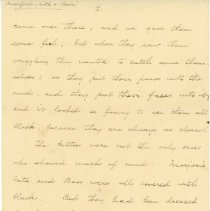 Marjorie, Nita & Bess
2
came over there, and we gave them
some fish, but when they saw them
wriggling they wanted to catch some them-
selves; so they put their paws into the
mud, and they put their faces into it,
and it looked so funny to see them all
black because they are always so clean.
The kitties were not the only ones
who showed marks of mud. Marjorie,
Nita and Bess were all covered with
black. But they had been dressed